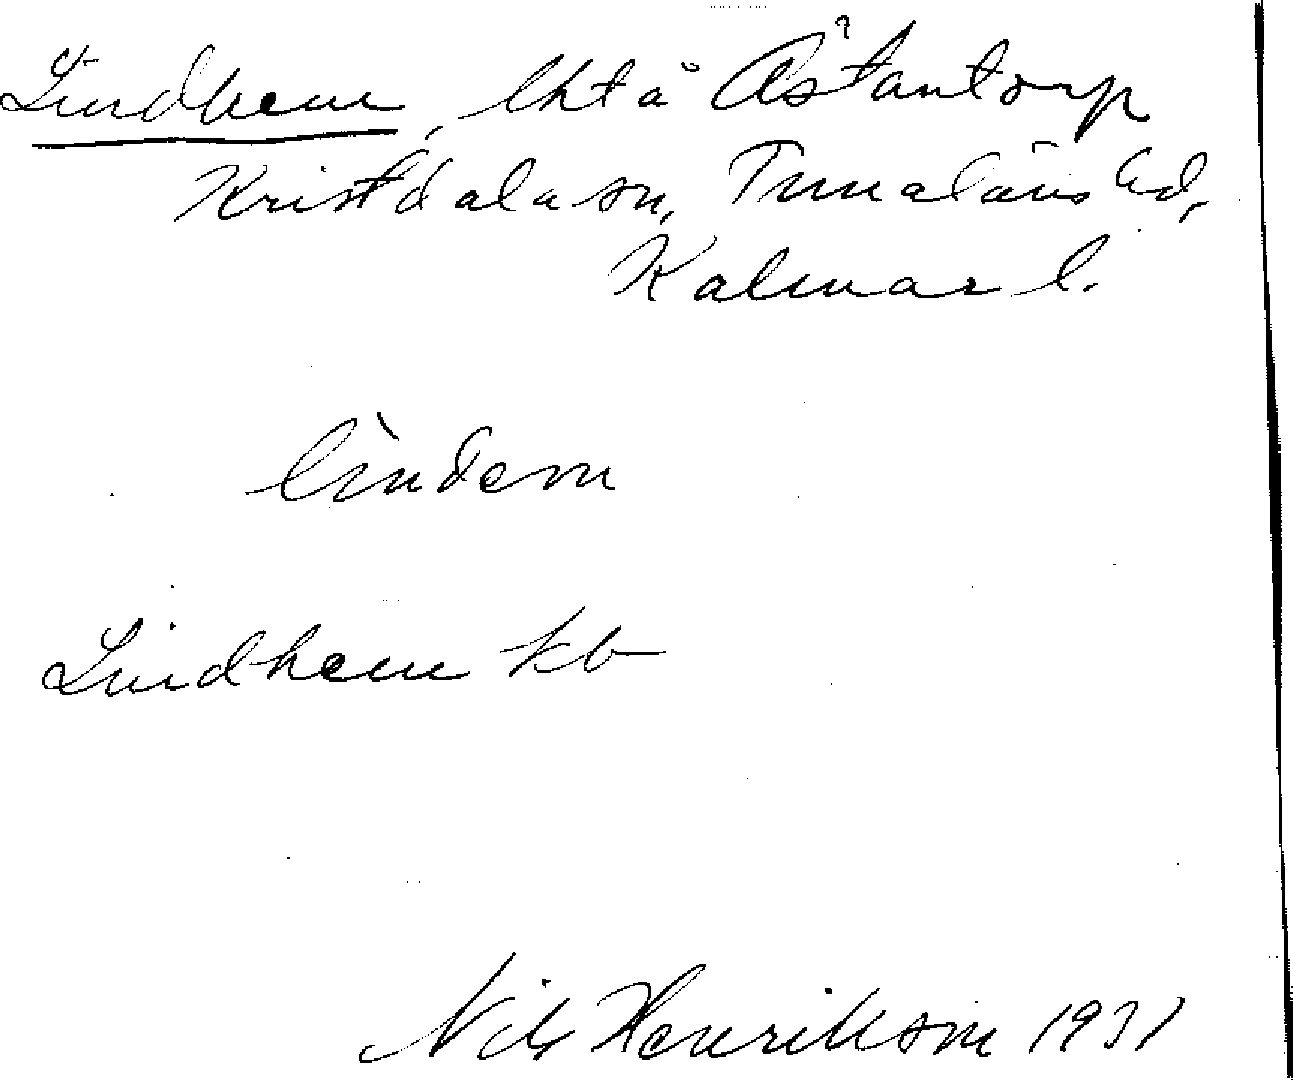 Lindhem, lht å Åstantorp
Kristdala sn, Tunaläns hd,
Kalmar l.
lìndem
Lindhem kb
Nils Henriksson 1931